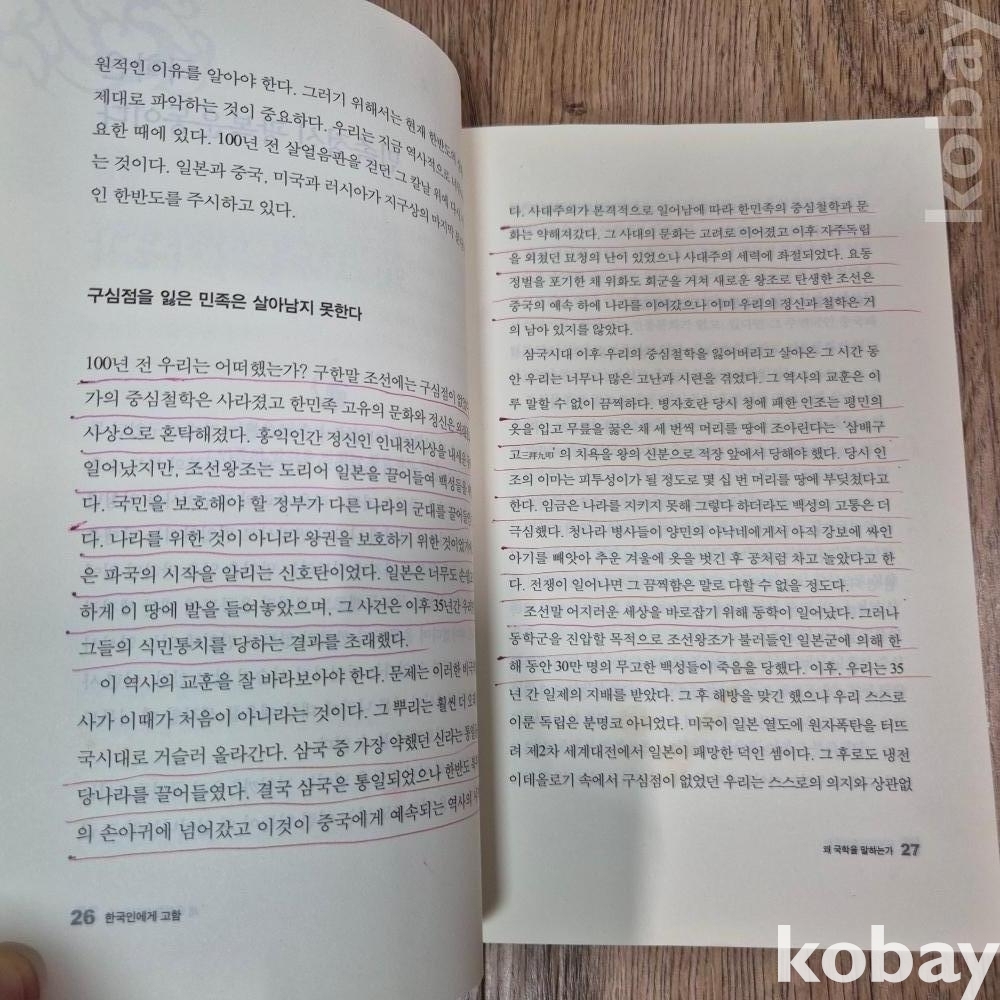 원적인 이유를 알아야 한다. 그러기 위해서는 현재 한반도의
제대로 파악하는 것이 중요하다. 우리는 지금 역사적으로
요한 때에 있다. 100년 전 살얼음판을 걷던 그 칼날 위에 다시
는 것이다. 일본과 중국, 미국과 러시아가 지구상의 마지막
인 한반도를 주시하고 있다.
구심점을 잃은 민족은 살아남지 못한다
100년 전 우리는 어떠했는가? 구한말 조선에는 구심점이
가의 중심철학은 사라졌고 한민족 고유의 문화와 정신은
사상으로 혼탁해졌다. 홍익인간 정신인 인내천사상을
일어났지만, 조선왕조는 도리어 일본을 끌어들여 백성들을
다. 국민을 보호해야 할 정부가 다른 나라의 군대를
다. 나라를 위한 것이 아니라 왕권을 보호하기 위한
은 파국의 시작을 알리는 신호탄이었다. 일본은 너무도
하게 이 땅에 발을 들여놓았으며, 그 사건은 이후 35년간
그들의 식민통치를 당하는 결과를 초래했다.
이 역사의 교훈을 잘 바라보아야 한다. 문제는 이러한
사가 이때가 처음이 아니라는 것이다. 그 뿌리는 훨씬 더
국시대로 거슬러 올라간다. 삼국 중 가장 약했던 신라는
당나라를 끌어들였다. 결국 삼국은 통일되었으나 한반도
의 손아귀에 넘어갔고 이것이 중국에게 예속되는 역사의
26 한국인에게 고함
다. 사대주의가 본격적으로 일어남에 따라 한민족의 중심철학과 문
화는 약해져갔다. 그 사대의 문화는 고려로 이어졌고 이후 자주독립
을 외쳤던 묘청의 난이 있었으나 사대주의 세력에 좌절되었다. 요동
정벌을 포기한 채 위화도 회군을 거쳐 새로운 왕조로 탄생한 조선은
중국의 예속 하에 나라를 이어갔으나 이미 우리의 정신과 철학은 거
의 남아 있지를 않았다.
삼국시대 이후 우리의 중심철학을 잃어버리고 살아온 그 시간 동
안 우리는 너무나 많은 고난과 시련을 겪었다. 그 역사의 교훈은 이
루 말할 수 없이 끔찍하다. 병자호란 당시 청에 패한 인조는 평민의
옷을 입고 무릎을 꿇은 채 세 번씩 머리를 땅에 조아린다는 '삼배구
고三拜九叩'의 치욕을 왕의 신분으로 적장 앞에서 당해야 했다. 당시 인
조의 이마는 피투성이가 될 정도로 몇 십 번 머리를 땅에 부딪쳤다고
한다. 임금은 나라를 지키지 못해 그렇다 하더라도 백성의 고통은 더
극심했다. 청나라 병사들이 양민의 아낙네에게서 아직 강보에 싸인
아기를 빼앗아 추운 겨울에 옷을 벗긴 후 공처럼 차고 놀았다고 한
다. 전쟁이 일어나면 그 끔찍함은 말로 다할 수 없을 정도다.
조선말 어지러운 세상을 바로잡기 위해 동학이 일어났다. 그러나
동학군을 진압할 목적으로 조선왕조가 불러들인 일본군에 의해 한
해 동안 30만 명의 무고한 백성들이 죽음을 당했다. 이후, 우리는 35
년 간 일제의 지배를 받았다. 그 후 해방을 맞긴 했으나 우리 스스로
이룬 독립은 분명코 아니었다. 미국이 일본 열도에 원자폭탄을 터뜨
려 제2차 세계대전에서 일본이 패망한 덕인 셈이다. 그 후로도 냉전
이데올로기 속에서 구심점이 없었던 우리는 스스로의 의지와 상관없
왜 국학을 말하는가 27
kobay
kobay